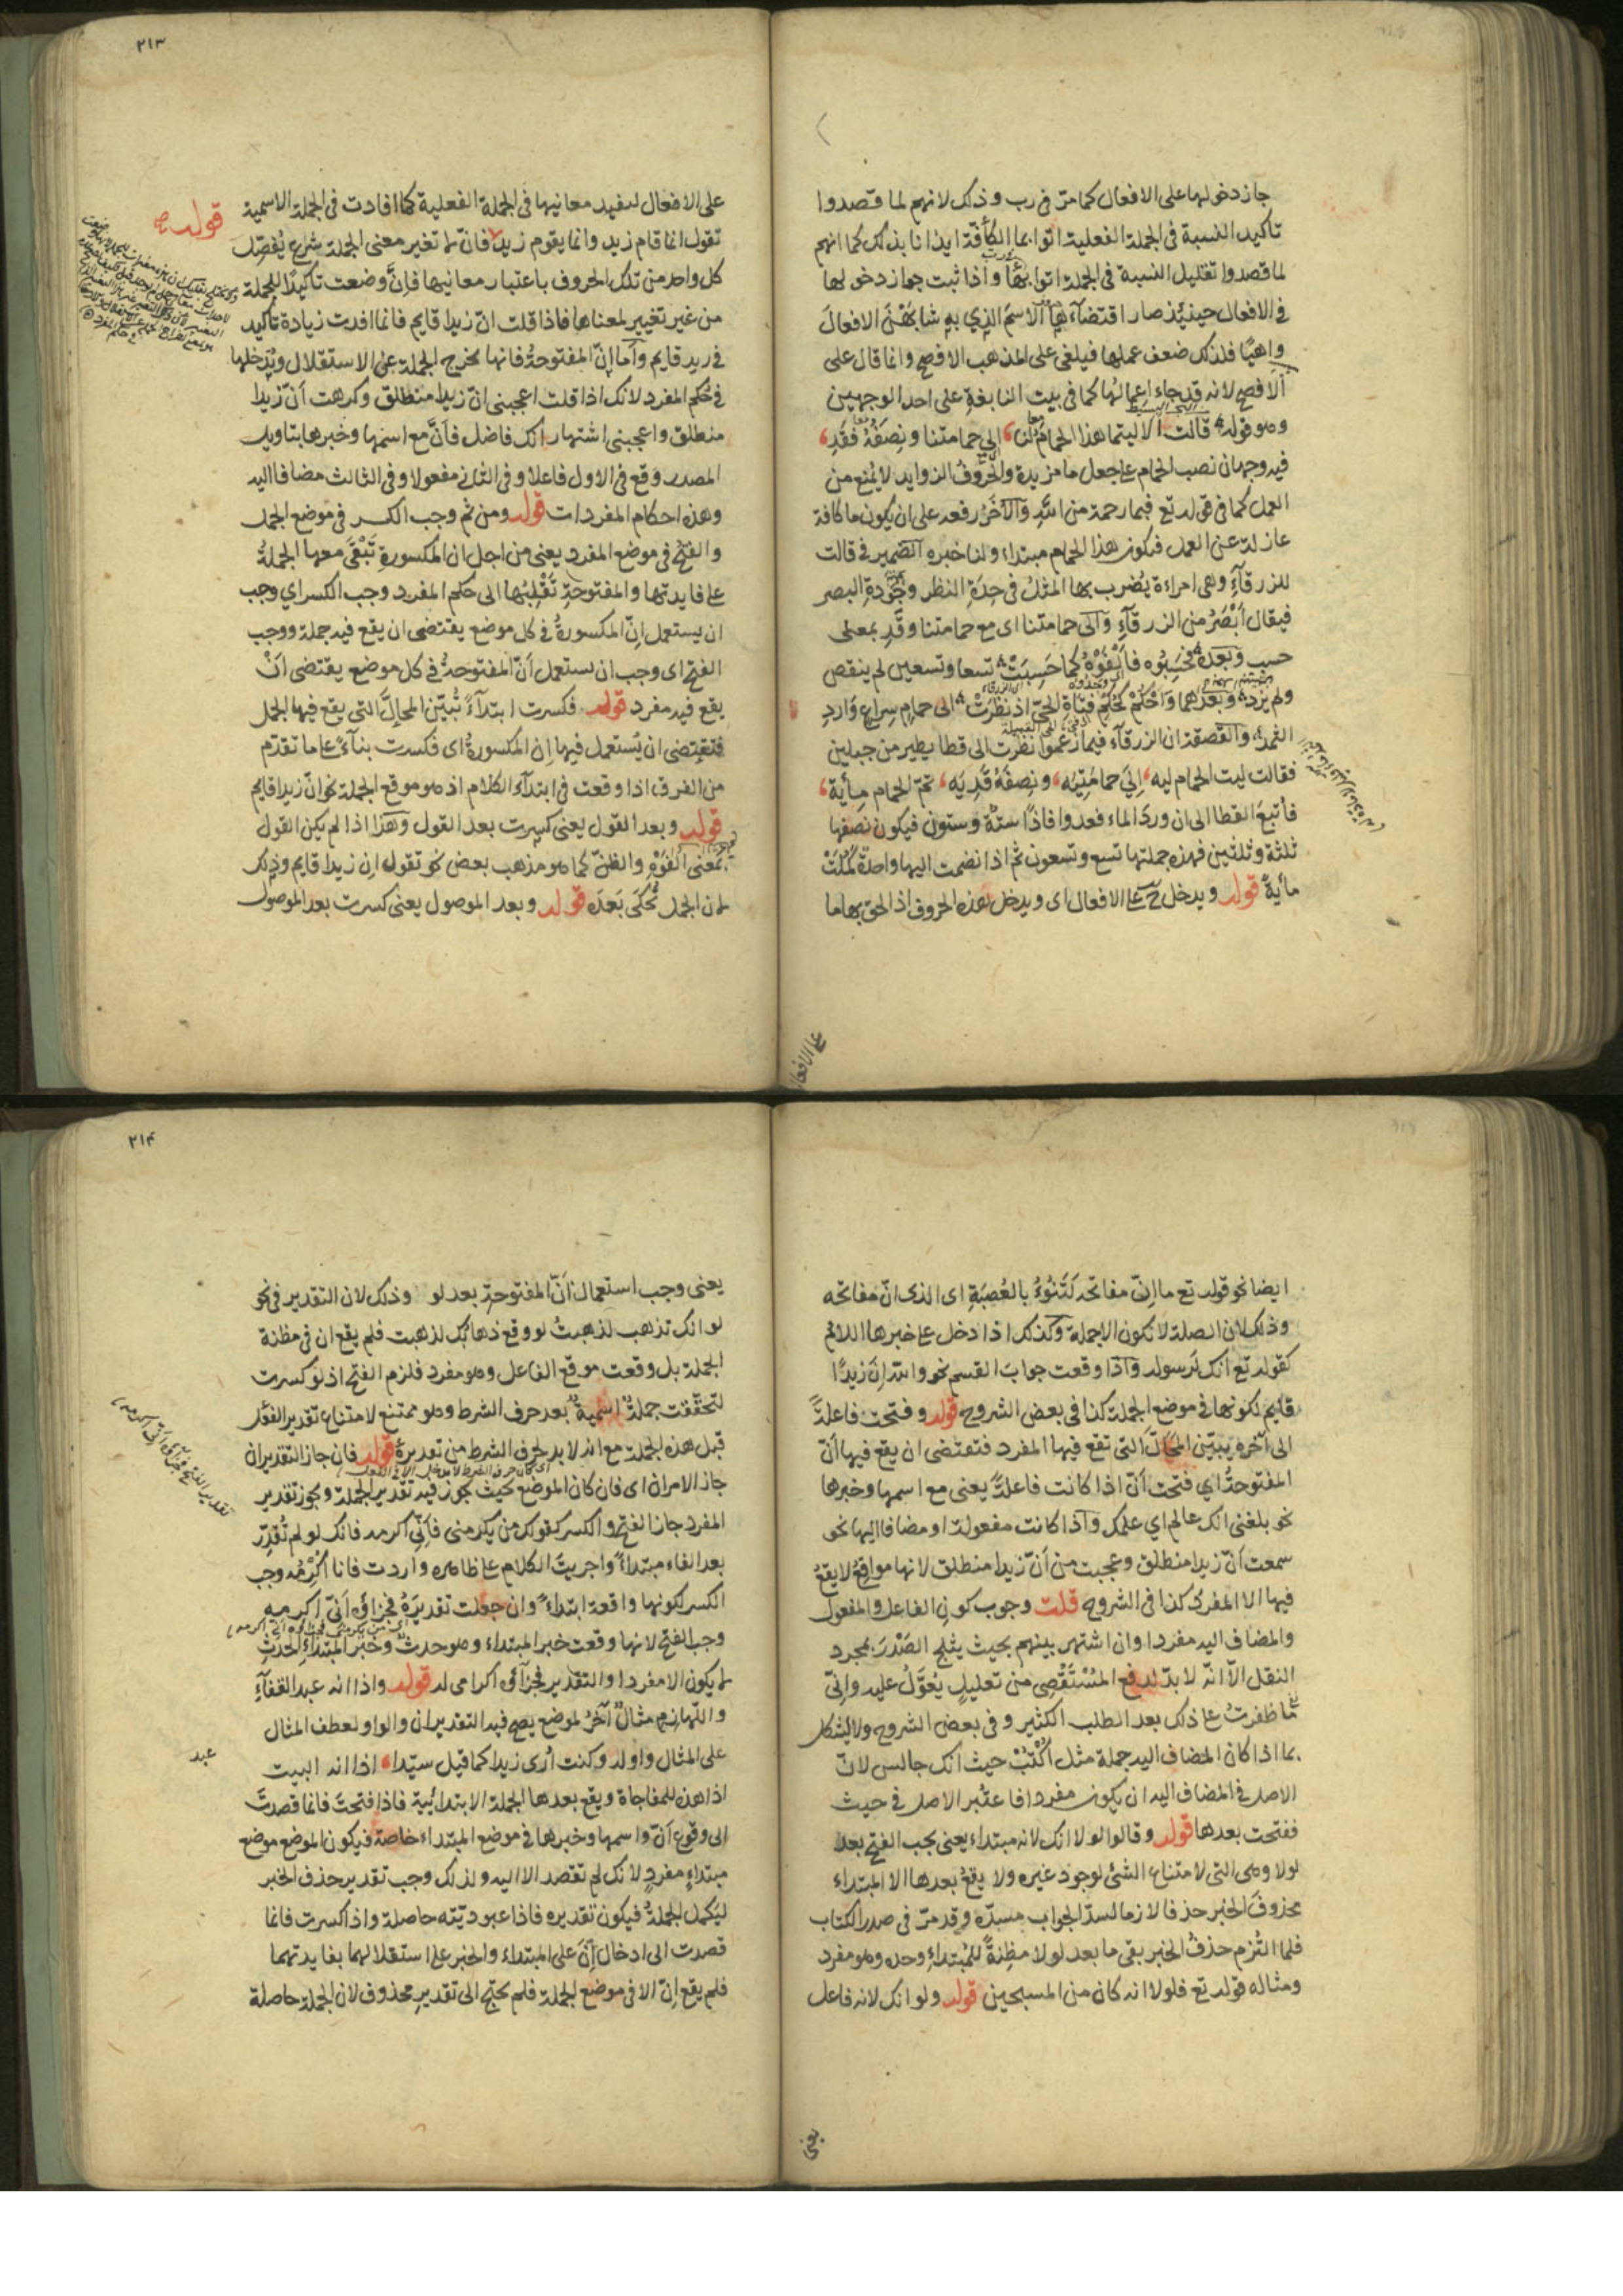 جاز دخولها على الافعال كما مرّ فى رب وذلك لانهم لما قصدوا
تاكيد النسبة فى الجملة الفعلية اتوا بما الكافّة ايذانا بذلك كما انهم
لما قصدوا تقليل النسبة فى الجملة اتوا بربّما واذا ثبت جواز دخولها
فى الافعال حينئذ صار اقتضاءها الاسم الذى به شابهن الافعال
واهيًا فلذلك ضعف عملها فيلغى على المذهب الافصح وانما قال على
الافصح لانه قد جاء اعمالها كما فى بيت النابغة على احد الوجهين
وهو قوله قالت الا ليتما هذا الحمام لنا الى حمامتنا ونصفه فقد
فيه وجهان نصب الحمام على جعل ما مزيدة والحروف الزوايد لا يمنع من
العمل كما فى قوله تع فبما رحمة من الله والآخر رفعه على ان يكون ما كافة
عازلة عن العمل فيكون هذا الحمام مبتداء ولنا خبره الضمير فى قالت
للزرقاء وهى امراءة يُضرب بها المثل فى حدة النظر وجودة البصر
فيقال ابصر من الزرقاء والى حمامتنا اى مع حمامتنا وقد بمعنى
حسب وبعده فحسبوه فالفوه كما حسبت تسعا وتسعين لم ينقص
ولم يزد وبعدهما واحكم كحكم فتاة الحىّ اذ نظرت الى حمام سراع وارد
الثمد والقصة ان الزرقاء فيما زعموا نظرت الى قطا يطير من جبلين
فقالت ليت الحمام ليه الى حمامتيه ونصفه قديه تمّ الحمام مأية
فأتبع القطا الى ان ورد الماء فعدوا فاذا ستة وستون فيكون نصفها
ثلثة وثلثين فهذه جملتها تسع وتسعون ثم اذا انضمت اليها واحدة كملت
مأية قوله ويدخل ح على الافعال اى ويدخل هذه الحروف اذا لحق بها ما
على الافعال
٢١٣
على الافعال ليفيد معانيها فى الجملة الفعلية كما افادت فى الجملة الاسمية
تقول انما قام زيد وانما يقوم زيد فانّ لا تغير معنى الجملة شرع يُفصّل
كل واحد من تلك الحروف باعتبار معانيها فانّ وضعت تاكيدًا للجملة
من غير تغيير لمعناها فاذا قلت انّ زيدا قايم فانما افدت زيادة تأكيد
فى زيد قايم وامّا انّ المفتوحة فانها تخرج الجملة عن الاستقلال وتدخلها
فى حكم المفرد لانك اذا قلت اعجبنى انّ زيدا منطلق وكرهت أنّ زيدا
منطلق واعجبنى اشتهار انك فاضل فانّ مع اسمها وخبرها بتاويل
المصدر وقع فى الاول فاعلا وفى الثانى مفعولا وفى الثالث مضافا اليه
وهذه احكام المفردات قوله ومن ثم وجب الكسر فى موضع الجمل
والفتح فى موضع المفرد يعنى من اجل ان المكسورة تبقى معها الجملة
على فايدتها والمفتوحة تقلبها الى حكم المفرد وجب الكسر اى وجب
ان يستعمل انّ المكسورة فى كل موضع يقتضى ان يقع فيه جملة ووجب
الفتح اى وجب ان يستعمل أنّ المفتوحة فى كل موضع يقتضى ان
يقع فيه مفرد قوله فكسرت ابتداءً تبيّن المحالّ التى يقع فيها الجمل
فتقتضى ان يُستعمل فيها ان المكسورة اى فكسرت بناءً على ما تقدّم
من الفرق اذا وقعت فى ابتداء الكلام اذ هو موقع الجملة نحو انّ زيدا قايم
قوله وبعد القول يعنى كسرت بعد القول وهذا اذا لم يكن القول
بمعنى التفوّه والظنّ كما هو مذهب بعض نحو تقول ان زيدا قايم وذلك
لان الجمل تُحكَى بعده قوله وبعد الموصول يعنى كسرت بعد الموصول
قوله
ايضا نحو قوله تع ما انّ مفاتحه لتنوء بالعصبة اى الذى انّ مفاتحه
وذلك لان الصلة لا تكون الا جملة وكذلك اذا دخل على خبرها اللام
كقوله تع انك لرسوله واذا وقعت جواب القسم نحو والله انّ زيدًا
قايم لكونها فى موضع الجملة كذا فى بعض الشروح قوله وفتحت فاعلةً
الى آخره يبيّن المحالّ التى تقع فيها المفرد فتقتضى ان يقع فيها أنّ
المفتوحة اى فتحت أنّ اذا كانت فاعلةً يعنى مع اسمها وخبرها
نحو بلغنى انك عالم اى علمك واذا كانت مفعولة او مضافا اليها نحو
سمعت أنّ زيدا منطلق وعجبت من أنّ زيدا منطلق لانها مواقع لا يقع
فيها الا المفرد كذا فى الشروح قلت وجوب كون الفاعل والمفعول
والمضاف اليه مفردا وان اشتهر بينهم بحيث يثلج الصدر بمجرد
النقل الّا انّه لا بدّ لدفع المستقصى من تعليل يُعوّل عليه وانّى
ما ظفرت على ذلك بعد الطلب الكثير وفى بعض الشروح ولا يشكل
بما اذا كان المضاف اليه جملة مثل اكتب حيث انك جالس لانّ
الاصل فى المضاف اليه ان يكون مفردا فاعتبر الاصل فى حيث
ففتحت بعدها قوله وقالوا لولا انك لانه مبتداء يعنى يجب الفتح بعد
لولا وهى التى لامتناع الشئ لوجود غيره ولا يقع بعدها الا المبتداء
محذوف الخبر حذفا لازما لسدّ الجواب مسدّه وقد مرّ فى صدر الكتاب
فلما التُزم حذف الخبر بقى ما بعد لولا مظنةً للمبتداء وحده وهو مفرد
ومثاله قوله تع فلولا انه كان من المسبحين قوله ولو انك لانه فاعل
يعنى
٢١۴
يعنى وجب استعمال أنّ المفتوحة بعد لو وذلك لان التقدير فى نحو
لو انك تذهب لذهبت لو وقع ذهابك لذهبت فلم يقع ان فى مظنة
الجملة بل وقعت موقع الفاعل وهو مفرد فلزم الفتح اذ لو كسرت
لتحققت جملة اسمية بعد حرف الشرط وهو ممتنع لامتناع تقدير الفعل
قبل هذه الجملة مع انه لا بد لحرف الشرط من تقديره قوله فان جاز التقديران
جاز الامران اى فان كان الموضع بحيث يجوز فيه تقدير الجملة ويجوز تقدير
المفرد جاز الفتح والكسر كقولك من يكرمنى فانّى اكرمه فانك لو لم تُقدّر
بعد الفاء مبتداءً واجريت الكلام على ظاهره واردت فانا اكرمه وجب
الكسر لكونها واقعة ابتداءً وان جعلت تقديره فجزاؤه أنّى اكرمه
وجب الفتح لانها وقعت خبر المبتداء وهو حدث وخبر المبتداء الحدث
لا يكون الا مفردا والتقدير فجزاؤه اكرامى له قوله واذا انه عبد القفاء
واللهازم مثالٌ آخر لموضع يصح فيه التقديران والواو لعطف المثال
على المثال واوله وكنت أرى زيدا كما قيل سيّدا اذا انه البيت
عبد
اذا هذه للمفاجاة ويقع بعدها الجملة الابتدائية فاذا فتحت فانما قصدت
الى وقوع أنّ واسمها وخبرها فى موضع المبتداء خاصة فيكون الموضع موضع
مبتداءٍ مفردٍ لانك لم تقصد الا اليه ولذلك وجب تقدير حذف الخبر
ليكمل الجملة فيكون تقديره فاذا عبوديّته حاصلة واذا كسرت فانما
قصدت الى ادخال انّ على المبتداء والخبر على استقلالهما بفايدتهما
فلم يقع انّ الا فى موضع الجملة فلم يحتج الى تقدير محذوف لان الجملة حاصلة